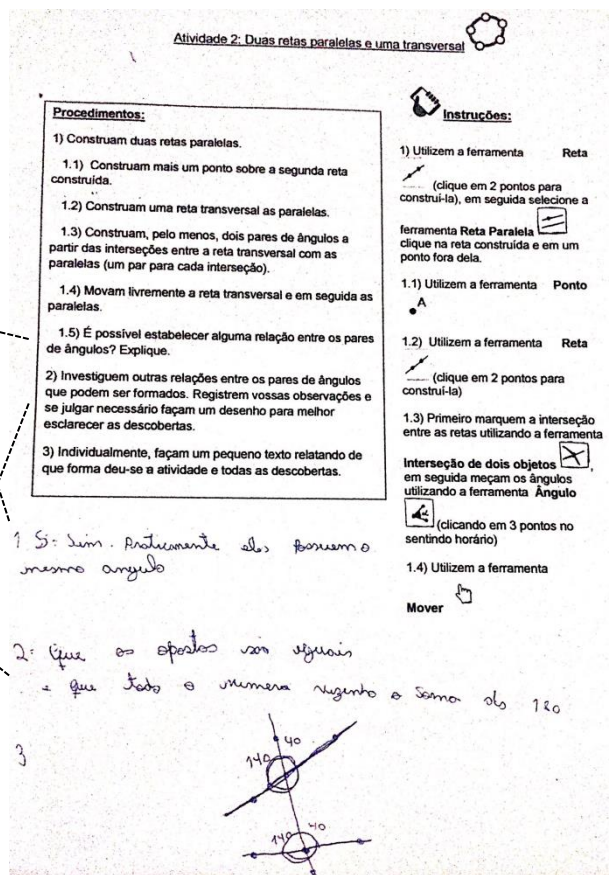 Atividade 2: Duas retas paralelas e uma transversal
Procedimentos:
1) Construam duas retas paralelas.
1.1) Construam mais um ponto sobre a segunda reta
construída.
1.2) Construam uma reta transversal as paralelas.
1.3) Construam, pelo menos, dois pares de ângulos a
partir das interseções entre a reta transversal com as
paralelas (um par para cada interseção).
1.4) Movam livremente a reta transversal e em seguida as
paralelas.
1.5) É possível estabelecer alguma relação entre os pares
de ângulos? Explique.
2) Investiguem outras relações entre os pares de ângulos
que podem ser formados. Registrem vossas observações e
se julgar necessário façam um desenho para melhor
esclarecer as descobertas.
3) Individualmente, façam um pequeno texto relatando de
que forma deu-se a atividade e todas as descobertas.
Instruções:
1) Utilizem a ferramenta Reta
(clique em 2 pontos para
construí-la), em seguida selecione a
ferramenta Reta Paralela
clique na reta construída e em um
ponto fora dela.
1.1) Utilizem a ferramenta Ponto
A
1.2) Utilizem a ferramenta Reta
(clique em 2 pontos para
construí-la)
1.3) Primeiro marquem a interseção
entre as retas utilizando a ferramenta
Interseção de dois objetos ,
em seguida meçam os ângulos
utilizando a ferramenta Ângulo
(clicando em 3 pontos no
sentido horário)
1.4) Utilizem a ferramenta
Mover
1.5: Sim. Praticamente eles possuem o
mesmo angulo
2: Que os opostos são
e que todo o numero a soma
3
140 40
140 40